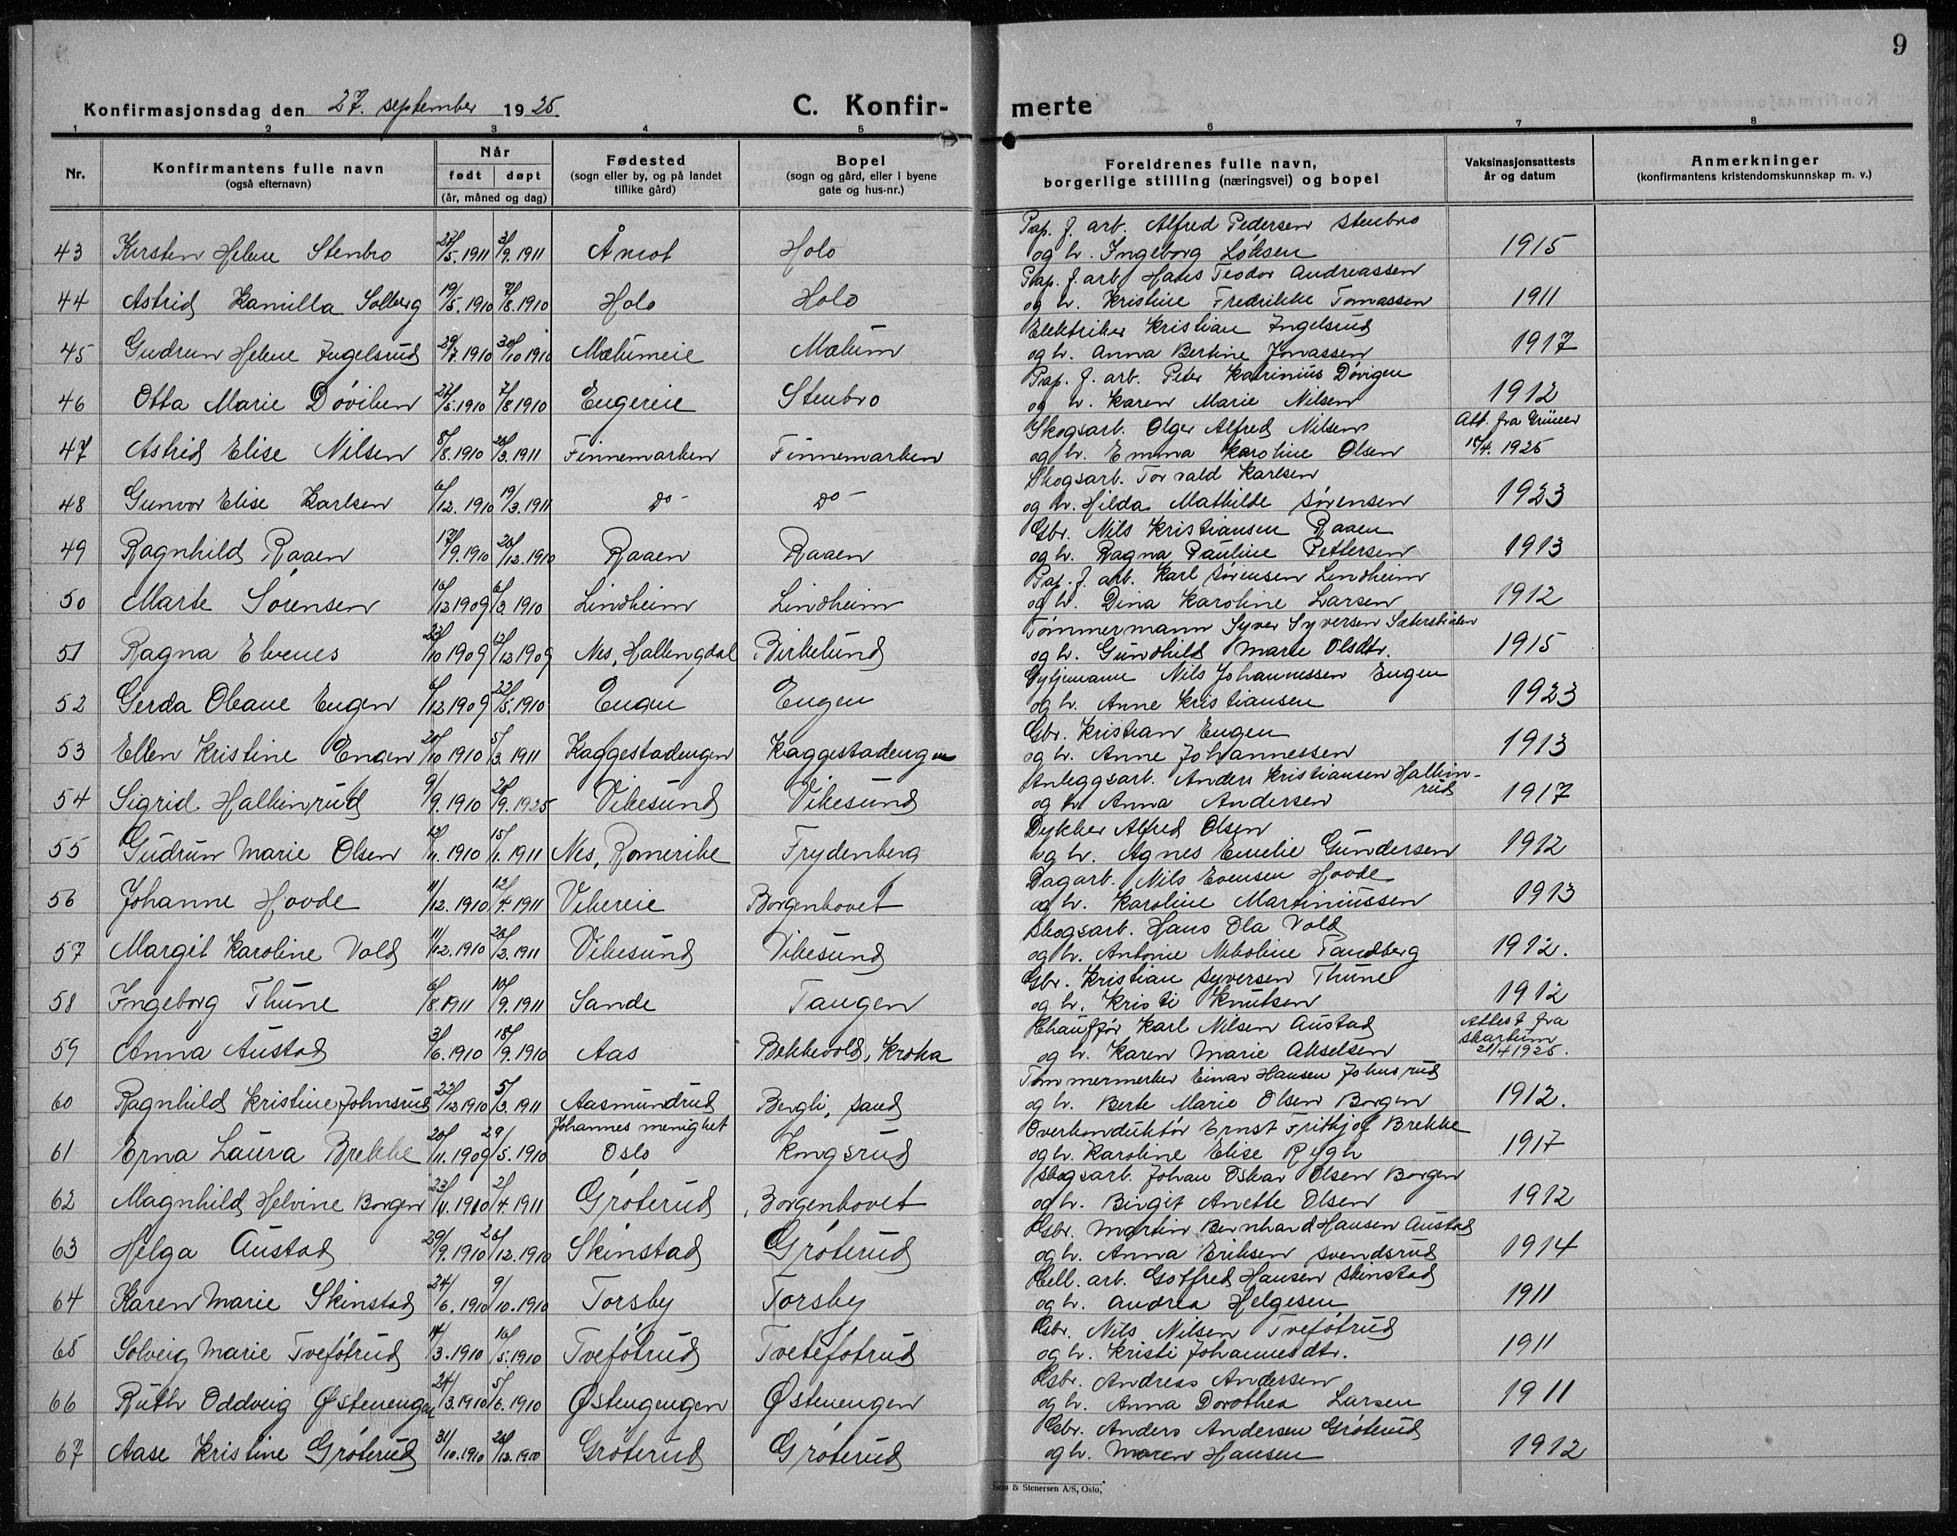 9
Konfirmasjonsdag den 27. september 1925. C. Konfir- merte
1 2 3 4 5 6 7 8
Nr. Konfirmantens fulle navn (også efternavn) Når født døpt (år, måned og dag) Fødested (sogn eller by, og på landet tillike gård) Bopel (sogn og gård, eller i byene gate og hus-nr.) Foreldrenes fulle navn, borgerlige stilling (næringsvei) og bopel Vaksinasjonsattests år og datum Anmerkninger (konfirmantens kristendomskunnskap m. v.)
Pap. f. arb. Alfred Pedersen Stenbro
43 Kirsten Helene Stenbro /5.1911 3/9.1911 Åmot Holo og h. Ingeborg Løksen 1915
Pap. f. arb. Hans Teodor Andreassen
44 Astrid Kamilla Solberg 19/5.1910 7/8.1910 Holo Holo og h. Kristine Fredrikke Tomassen 1911
Elektriker Kristian Ingelsrud
45 Gudrun Helene Ingelsrud 29/7.1910 30/10 1910 Mælumeie Mælum og h. Anna Bertine Jonassen 1917
Pap. f. arb. Peter Katrinius Døvigen
46 Otta Marie Døviken /5.1910 7/8 1910 Engereie Stenbro og h. Karen Marie Nilsen 1912
Skogsarb. Olger Alfred Nilsen Att. fra
47 Astrid Elise Nilsen 5/8.1910 26/3.1911 Finnemarken Finnemarken og h. Emma Karoline Olsen /4.1925
Skogsarb. Torvald Karlsen
48 Gunvor Elise Karlsen 6/12.1910 19/3.1911 do - do - og h. Hilda Mathilde Sørensen 1923
Gbr. Nils Kristiansen Raaen
49 Ragnhild Raaen 17/9.1910 26/12.1910 Raaen Raaen og h. Ragna Pauline Pettersen 1913
Pap. f. arb. Karl Sørensen Lindheim
50 Marte Sørensen 10/12 1909 6/3 1910 Lindheim Lindheim og h. Dina Karoline Larsen 1912
Tømmermann Syver Syversen
51 Ragna Elvenes 23/10 1909 12/12 1909 Nes, Hallingdal Birkelund og h. Gundhild Marie Olsdtr. 1915
Nils Johannessen Engen
52 Gerda Oleane Engen 6/12 1909 22/5.1910 Engen Engen og h. Anne Kristiansen 1923
Gbr. Kristian Engen
53 Ellen Kristine Engen 20/10 1910 5/3.1911 Kaggestadengen Kaggestadengen og h. Anne Johannessen 1913
Anleggsarb. Anders Kristiansen Halkin-
rud
54 Sigrid Halkinrud 9/9.1910 20/9.1925 Vikesund Vikesund og h. Anna Andersen 1917
Dykker Alfred Olsen
55 Gudrun Marie Olsen 12/11.1910 15/1.1911 Nes, Romerike Frydenberg og h. Agnes Emelie Gundersen 1912
Dagarb. Nils Evensen Hovde
56 Johanne Hovde 11/12.1910 12/4.1911 Vikereie Borgenhovet og h. Karoline Martiniussen 1913
Skogsarb. Hans Ola Vold
57 Margit Karoline Vold 11/12.1910 26/2.1911 Vikesund Vikesund og h. Antonie Nikoline Tandberg 1912.
Gbr. Kristian Syversen Thune
58 Ingeborg Thune 6/8.1911 10/9.1911 Sande Tangen og h. Kristi Knutsen 1912
Chauffør Karl Nilsen Austad Attest fra
59 Anna Austad 3/6.1910 18/9.1910 Aas Bekkevold, Kroka og h. Karen Marie Akselsen Skartum 21/4 1925.
Tømmermerker Einar Hansen Johnsrud
60 Ragnhild Kristine Johnsrud 22/12 1910 5/3.1911 Aasmundrud Bergli, Sand og h. Berte Marie Olsen Borgen 1912.
Johannes menighet Overkonduktør Ernst Fritjof Brekke
61 Erna Laura Brekke 20/11.1909 29/5.1910 Oslo Kongsrud og h. Karoline Elise Rygh 1917
Skogsarb. Johan Oskar Olsen Borgen
62 Magnhild Helvine Borgen 23/11.1910 2/4.1911 Grøterud Borgenhovet og h. Birgit Anette Olsen 1912
Gbr. Martin Bernhard Hansen Austad
63 Helga Austad 29/9.1910 26/12.1910 Skinstad Grøterud og h. Anna Eriksen Svendsrud 1914
Cell. arb. Gotfred Hansen Skinstad
64 Karen Marie Skinstad 24/6.1910 9/10.1910 Torsby Torsby og h. Andrea Helgesen 1911
Gbr. Nils Nilsen Tveføtrud
65 Solveig Marie Tveføtrud 14/3.1910 16/5.1910 Tveføtrud Tveteføtrud og h. Kristi Johannesdtr. 1911
Gbr. Andreas Andersen
66 Ruth Oddveig Østenengen 24/3.1910 5/6.1910 Østengengen Østenengen og h. Anna Dorothea Larsen 1911
Gbr. Anders Andersen Grøterud
67 Aase Kristine Grøterud 31/10.1910 26/12.1910 Grøterud Grøterud og h. Maren Hansen 1912
Sem & Stenersen A/S, Oslo.